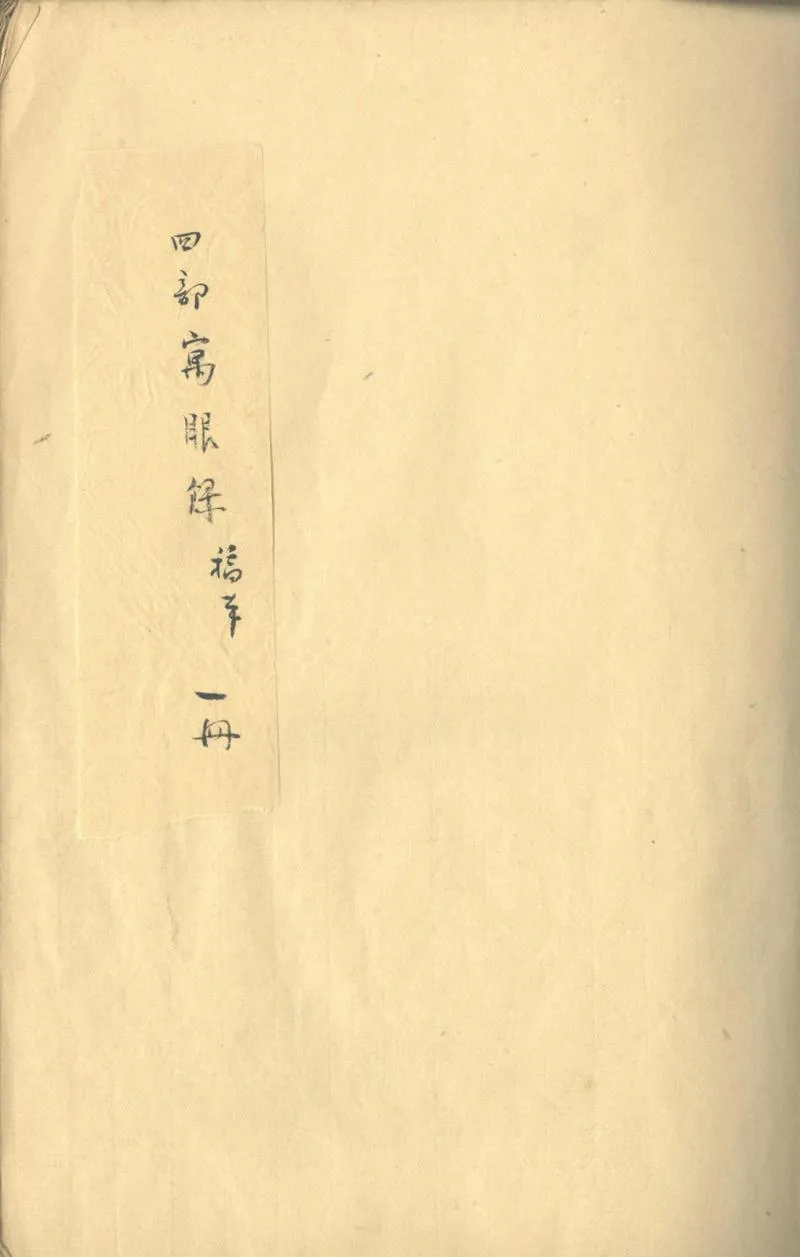 四部寓眼錄稿本 一冊